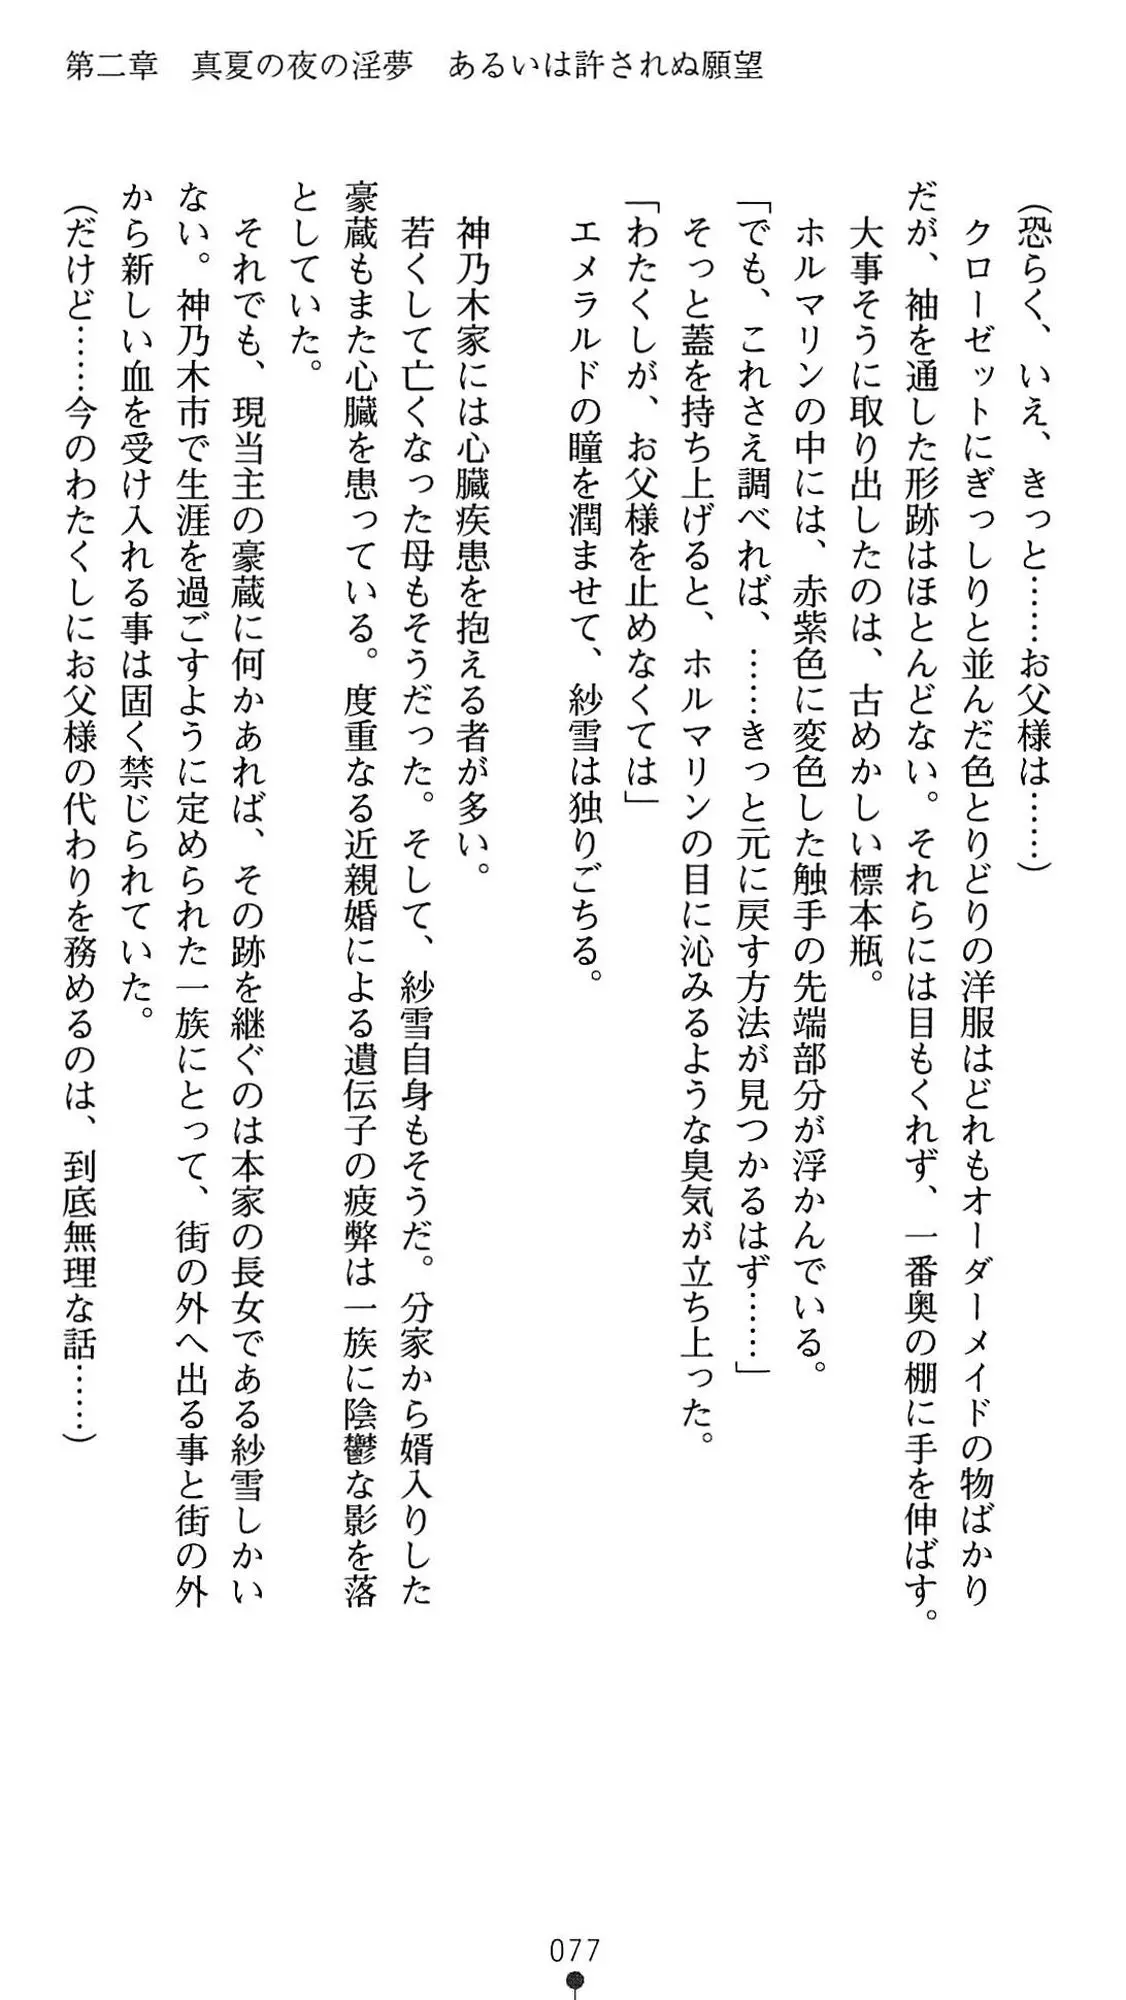 第二章　真夏の夜の淫夢　あるいは許されぬ願望
（恐らく、いえ、きっと……お父様は……）
　クローゼットにぎっしりと並んだ色とりどりの洋服はどれもオーダーメイドの物ばかり
だが、袖を通した形跡はほとんどない。それらには目もくれず、一番奥の棚に手を伸ばす。
　大事そうに取り出したのは、古めかしい標本瓶。
　ホルマリンの中には、赤紫色に変色した触手の先端部分が浮かんでいる。
「でも、これさえ調べれば、……きっと元に戻す方法が見つかるはず……」
　そっと蓋を持ち上げると、ホルマリンの目に沁みるような臭気が立ち上った。
「わたくしが、お父様を止めなくては」
　エメラルドの瞳を潤ませて、紗雪は独りごちる。
　神乃木家には心臓疾患を抱える者が多い。
　若くして亡くなった母もそうだった。そして、紗雪自身もそうだ。分家から婿入りした
豪蔵もまた心臓を患っている。度重なる近親婚による遺伝子の疲弊は一族に陰鬱な影を落
としていた。
　それでも、現当主の豪蔵に何かあれば、その跡を継ぐのは本家の長女である紗雪しかい
ない。神乃木市で生涯を過ごすように定められた一族にとって、街の外へ出る事と街の外
から新しい血を受け入れる事は固く禁じられていた。
（だけど……今のわたくしにお父様の代わりを務めるのは、到底無理な話……）
077